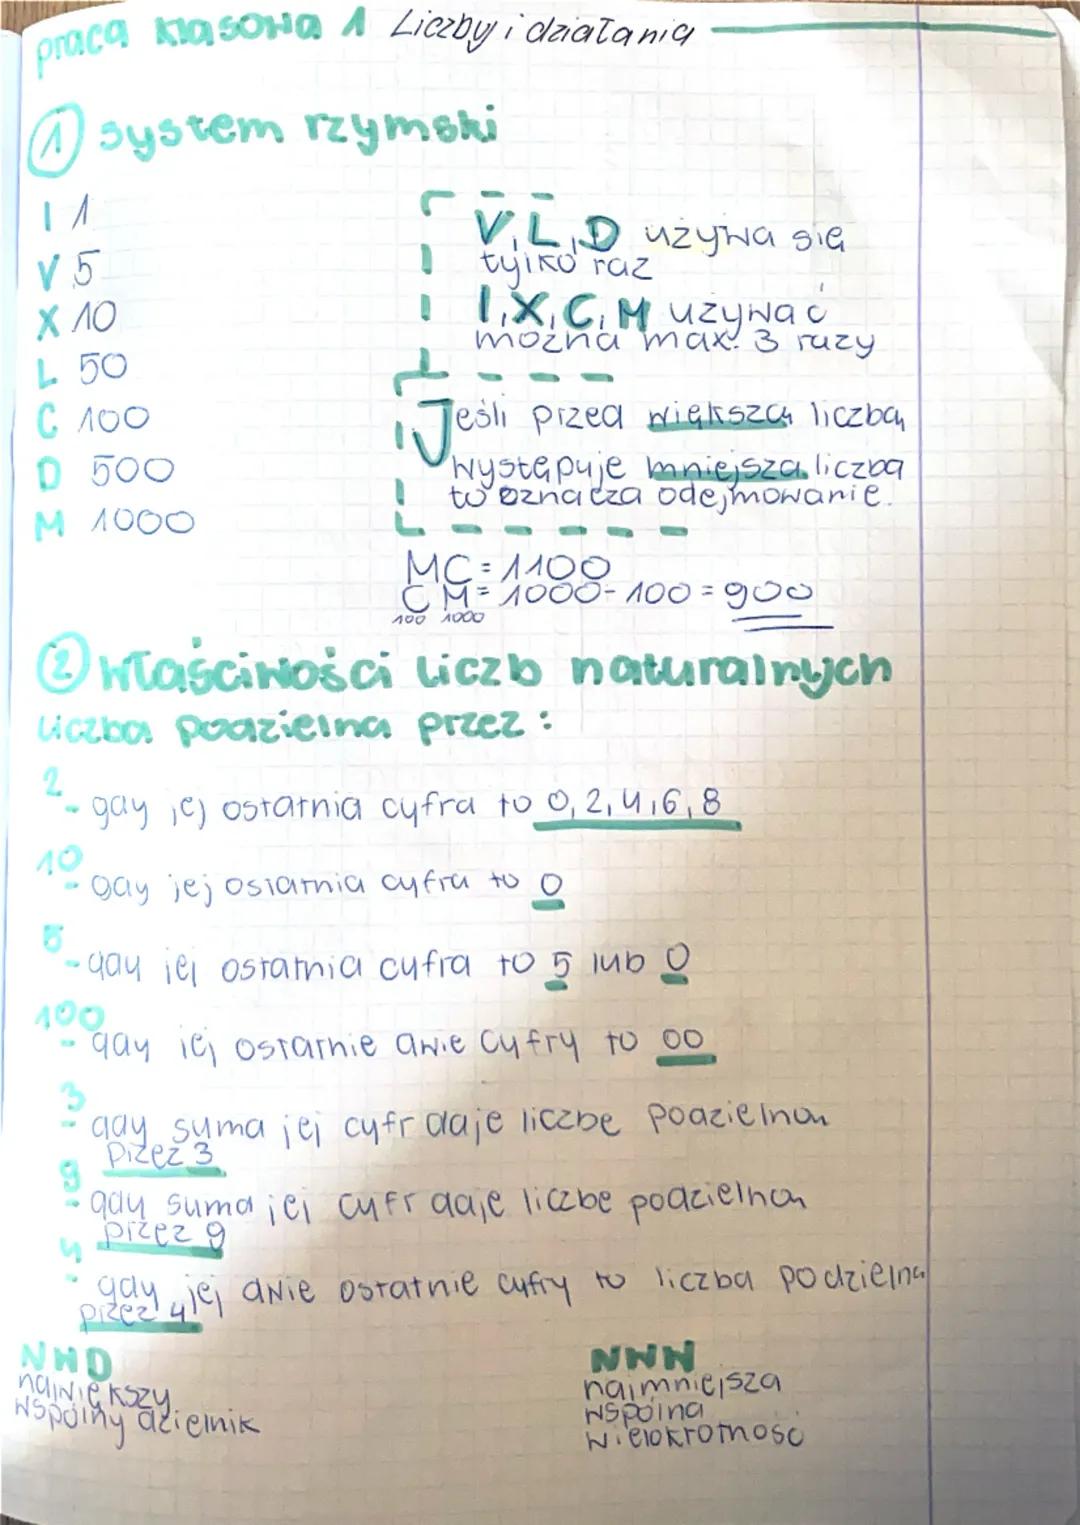 praca klasowa 1 Liczby i działania
1 system rzymski
I 1
V 5
X 10
L 50
C 100
D 500
M 1000
V, L, D używa się
tylko raz
I, X, C, M używać
można max. 3 razy
Jeśli przed większą liczbą
występuje mniejsza liczba
to oznacza odejmowanie.
MC = 1100
CM = 1000 - 100 = 900
100 1000
2 właściwości liczb naturalnych
liczba podzielna przez :
2
- gdy jej ostatnia cyfra to 0, 2, 4, 6, 8
10
- gdy jej ostatnia cyfra to 0
5
- gdy jej ostatnia cyfra to 5 lub 0
100
- gdy jej ostatnie dwie cyfry to 00
3
- gdy suma jej cyfr daje liczbe podzielną
przez 3
9
- gdy suma jej cyfr daje liczbe podzielną
przez 9
4
- gdy jej dwie ostatnie cyfry to liczba podzielna
przez 4
NWD
największy
wspólny dzielnik
NWW
najmniejsza
wspólna
wielokrotność